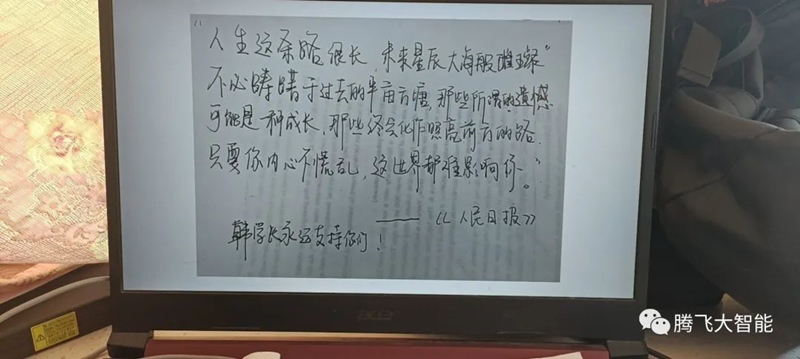 "人生这条路很长,未来星辰大海般璀璨"
不必踌躇于过去的半亩方塘,那些所谓的遗憾
可能是一种成长,那些终会化作照亮前方的路.
只要你内心不慌乱,这世界都难影响你。"
——《人民日报》
韩学长永远支持你们!
acer
腾飞大智能